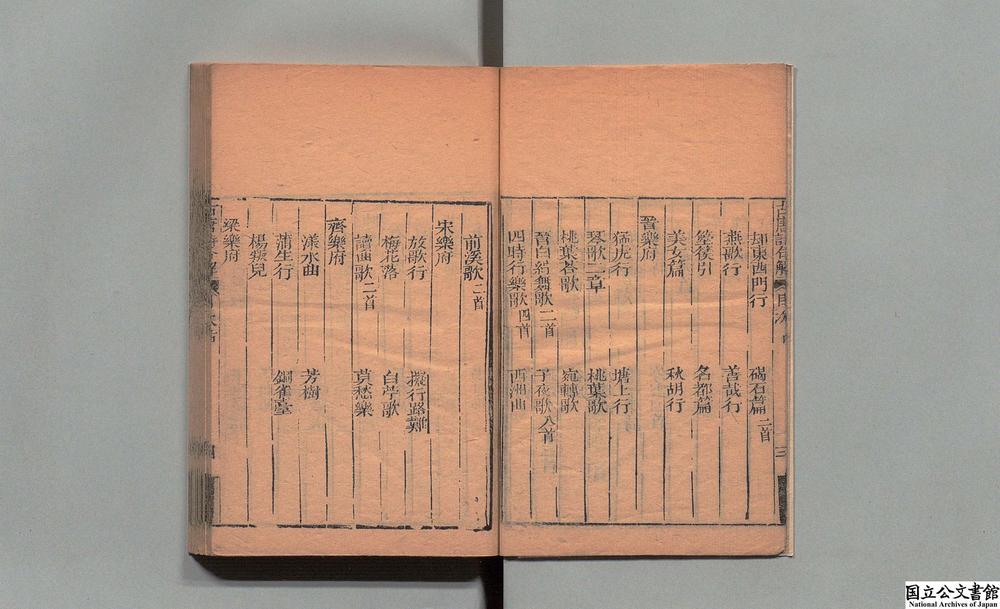 却東西門行 碣石篇二首
燕歌行 善哉行
箜篌引 名都篇
美女篇 秋胡行
晉樂府
猛虎行 塘上行
琴歌二章 桃葉歌
桃葉答歌 宛轉歌
晉白紵舞歌二首 子夜歌八首
四時行樂歌四首 西洲曲
三
前溪歌二首
宋樂府
放歌行 擬行路難
梅花落 白苧歌
讀曲歌二首 莫愁樂
齊樂府
淥水曲 芳樹
蒲生行 銅雀臺
楊叛兒
梁樂府
四
国立公文書館
National Archives of Japan